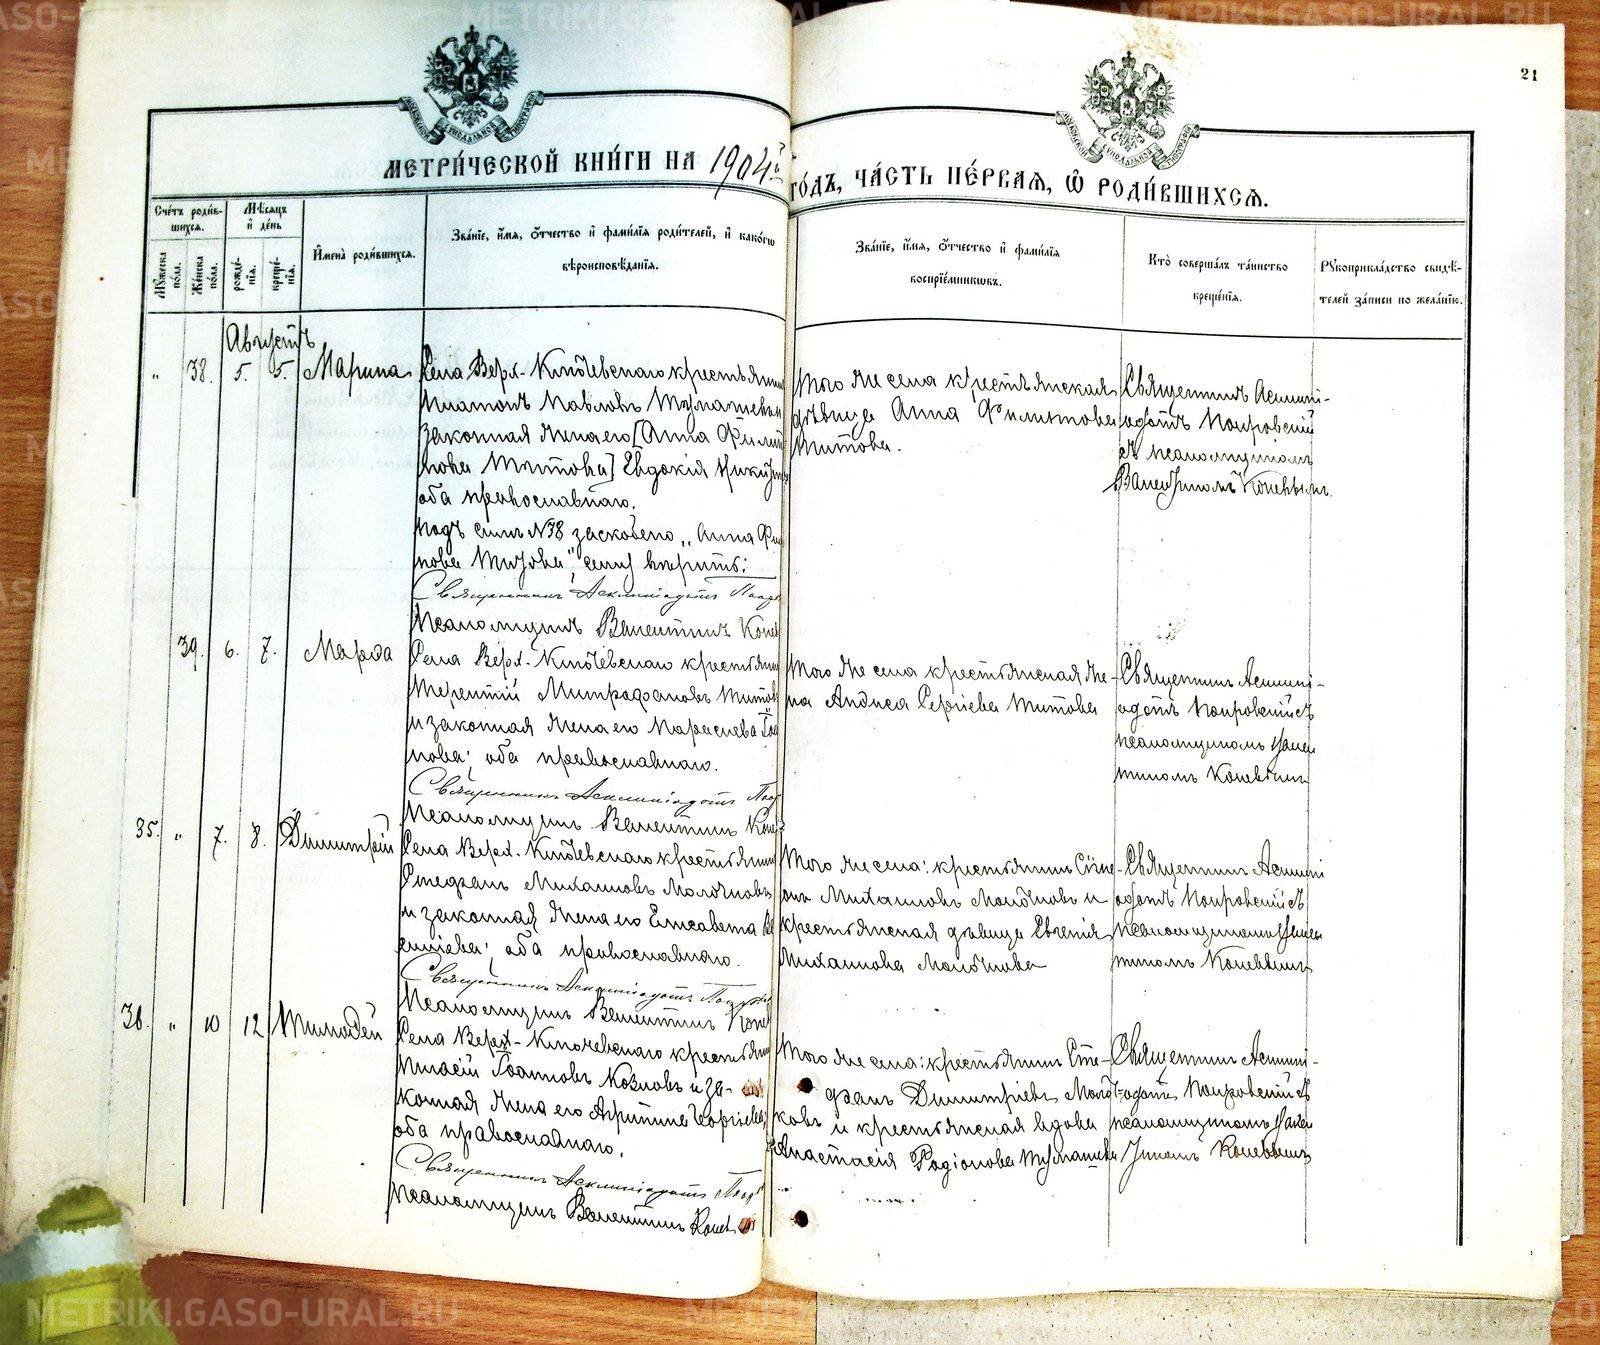 21
МЕТРИ́ЧЕСКОЙ КНИ́ГИ НА 1904 й
ГО́ДЪ, ЧА́СТЬ ПЕ́РВАѦ, Ѡ҆ РОДИ́ВШИХСѦ.
Сче́тъ роди́в-
шихсѧ.
Мѣ́сѧцъ
и҆ де́нь
Мꙋ́жеска
по́ла.
Же́нска
по́ла.
рожде́-
нїѧ.
креще́-
нїѧ.
И҆мена̀ роди́вшихсѧ.
Зва́нїе, и҆́мѧ, ѻ҆́тчество и҆ фами́лїѧ роди́телей, и҆ како́гѡ
вѣроисповѣ́данїѧ.
Зва́нїе, и҆́мѧ, ѻ҆́тчество и҆ фами́лїѧ
воспрїе́мникѡвъ.
Кто̀ соверша́лъ та́инство
креще́нїѧ.
Рꙋкоприкла́дство свидѣ́-
телей за́писи по жела́нїю.
Августъ
" 38. 5. 5. Марина
Села Верх-Ключевскаго крестьянин
Платонъ Павловъ Тулашевъ и
законная жена его [Анна Филип
пова Титова] Евдокія Никит
оба православнаго.
Подъ симъ №38 заскоблено "Анна Фи
пова Титова", сему вѣрить:
Священникъ Асклипіодотъ Покр
Псаломщикъ Валентинъ Коне
Того же села крестьянская
дѣвица Анна Филиппова
Титова.
Священникъ Асклипі-
одотъ Покровскій
съ псаломщикомъ
Валентиномъ Коневымъ.
39. 6. 7. Марѳа
Села Верх-Ключевскаго крестьянин
Терентій Митрофановъ Титовъ
и законная жена его Параскева
нова; оба православнаго.
Священникъ Асклипіодотъ Покр
Псаломщикъ Валентинъ Коне
Того же села крестьянская же-
на Анд Сергіева Титова
Священникъ Асклипі-
одотъ Покровскій съ
псаломщикомъ Вален
тиномъ Коневымъ
35. " 7. 8. Димитрій
Села Верх-Ключевскаго крестьянин
Стефанъ Михаиловъ Молочковъ
и законная жена его Елисавета
оба православнаго.
Священникъ Асклипіодотъ Покров
Псаломщикъ Валентинъ Коне
Того же села: крестьянинъ Симе
онъ Михаиловъ Молочковъ и
крестьянская дѣвица Евгенія
Михаилова Молочкова
Священникъ Асклипі
одотъ Покровскій съ
псаломщикомъ Вален
тиномъ Коневымъ
36. " 10 12 Тимоѳей
Села Верх-Ключевскаго крестьянин
Іоанновъ Козловъ и за-
конная жена его Агриппина Георгіева
оба православнаго.
Священникъ Асклипіодотъ Покр
Псаломщикъ Валентинъ Коне
Того же села: крестьянинъ Сте-
фанъ Димитріевъ Молоч
ковъ и крестьянская вдова
Анастасія Родіонова Тулашева
Священникъ Асклипі-
одотъ Покровскій съ
псаломщикомъ Вален
тиномъ Коневымъ
METRIKI.GASO-URAL.RU